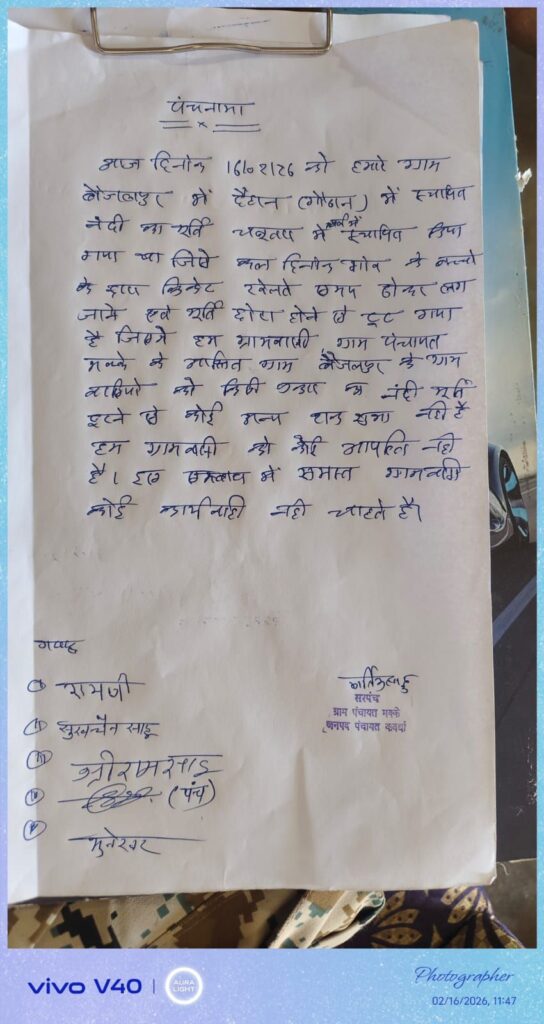 पंचनामा
आज दिनांक 16/02/26 को हमारे ग्राम
बैजलपुर में दैहान (गौठान) में स्थापित
नंदी का मूर्ति चबूतरा में स्थापित किया
गया था जिसे कल दिनांक गांव के बच्चो
के द्वारा क्रिकेट खेलते समय ठोकर लग
जाने एवं मूर्ति छोटा होने से टूट गया
है जिससे हम ग्रामवासी ग्राम पंचायत
मक्के के आश्रित ग्राम बैजलपुर के ग्राम
वासियों को किसी प्रकार का नंदी मूर्ति
टूटने से कोई अन्य शक सुबा नही है
हम ग्रामवासी को कोई आपत्ति नही
है। इस सम्बन्ध में समस्त ग्रामवासी
कोई कार्यवाही नही चाहते है।
गवाह
रामजी
सुखचैन साहू
श्रीरामसाहू
(पंच)
सरपंच
ग्राम पंचायत मक्के
जनपद पंचायत कवर्धा
vivo V40 | AURA LIGHT
Photographer
02/16/2026, 11:47